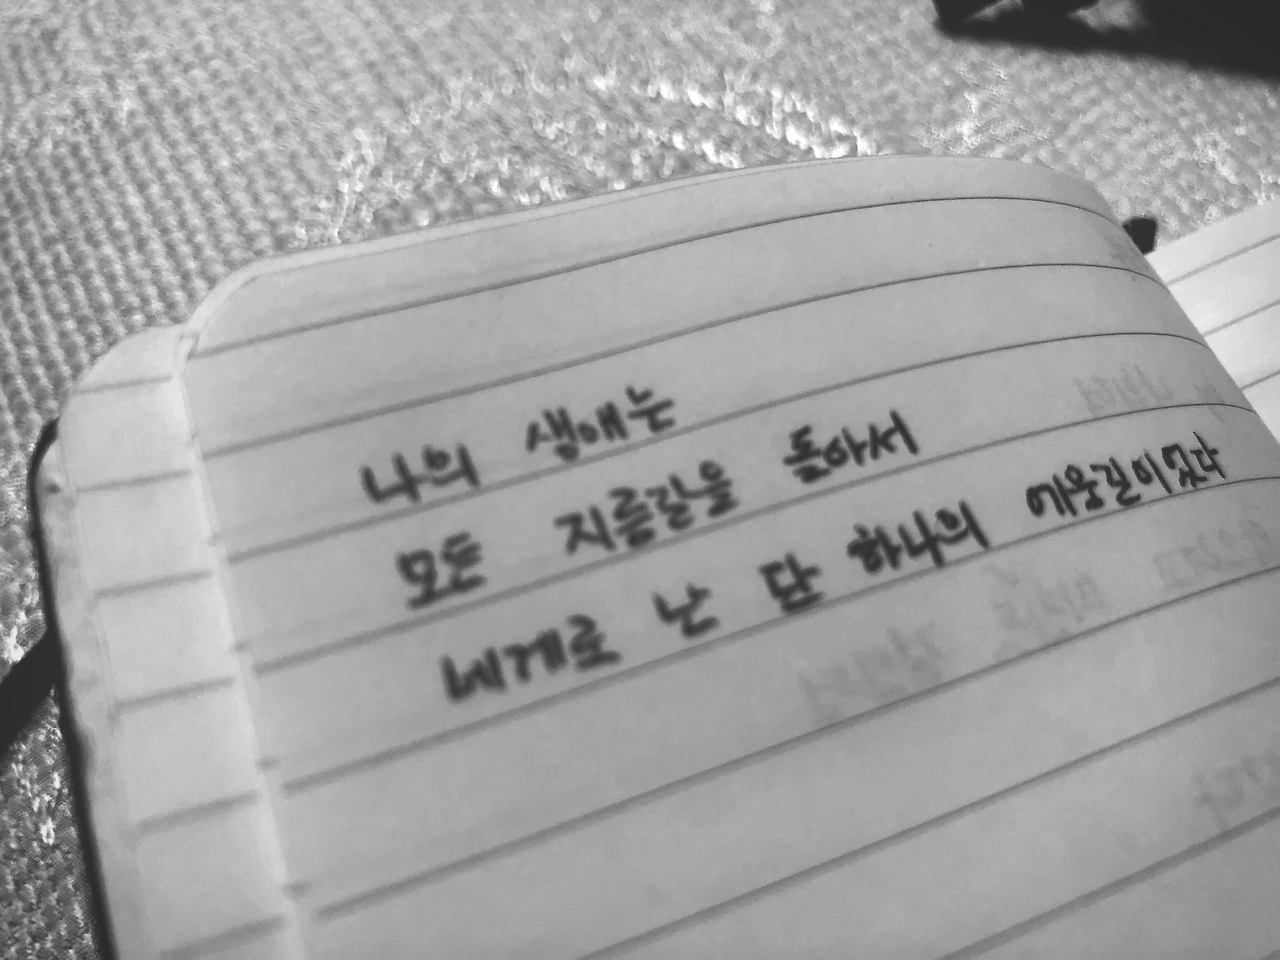 나의 생애는
모든 지름길을 돌아서
네게로 난 단 하나의 에움길이었다